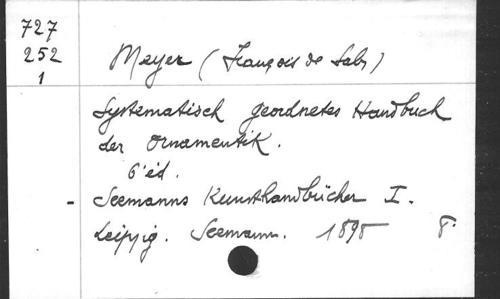 727
252
1
Meyer (François de Sales)
Systematisch geordnetes Handbuch
der Ornamentik.
6' éd.
- Seemanns Kunsthandbücher I.
Leipzig. Seemann. 1895 8°